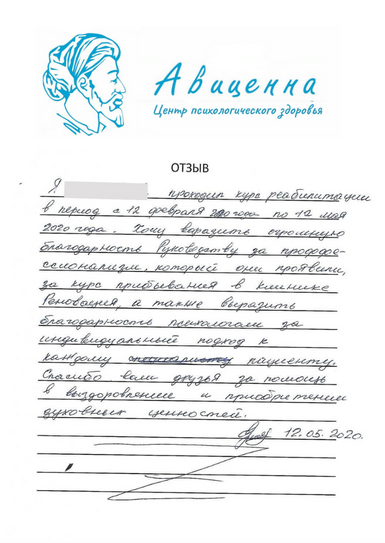 Авиценна
Центр психологического здоровья
ОТЗЫВ
Я проходил курс реабилитации
в период с 12 февраля 2020года по 12 мая
2020 года. Хочу выразить огромную
благодарность Руководству за профе-
ссионализм, который они проявили,
за курс прибывания в клинике
Реновация, а также выразить
благодарность психологам за
индивидуальный подход к
каждому специалисту пациенту.
Спасибо вам друзья за помощь
в выздоровление и приобритении
духовных ценностей.
12.05.2020.